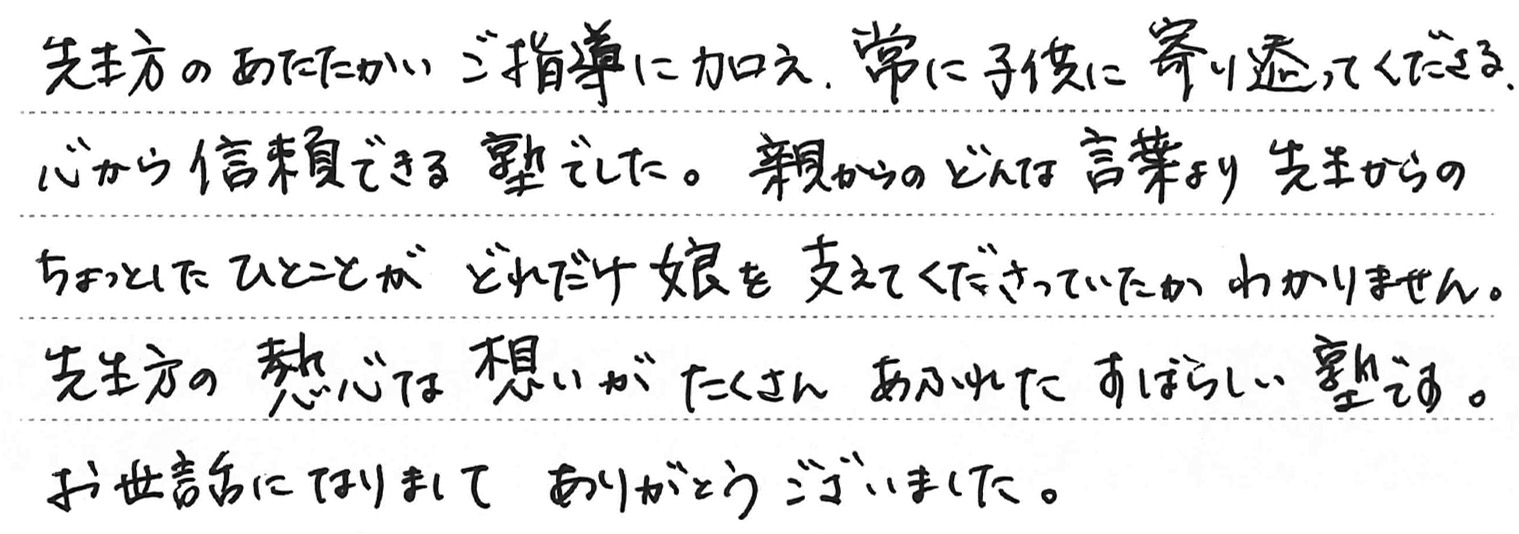 先生方の あたたかい ご指導に加え、常に子供に寄り添ってくださる、
心から信頼できる塾でした。親からのどんな言葉より先生からの
ちょっとしたひとことが どれだけ娘を支えてくださっていたかわかりません。
先生方の 熱心な 想いが たくさん あふれた すばらしい塾です。
お世話になりまして ありがとうございました。